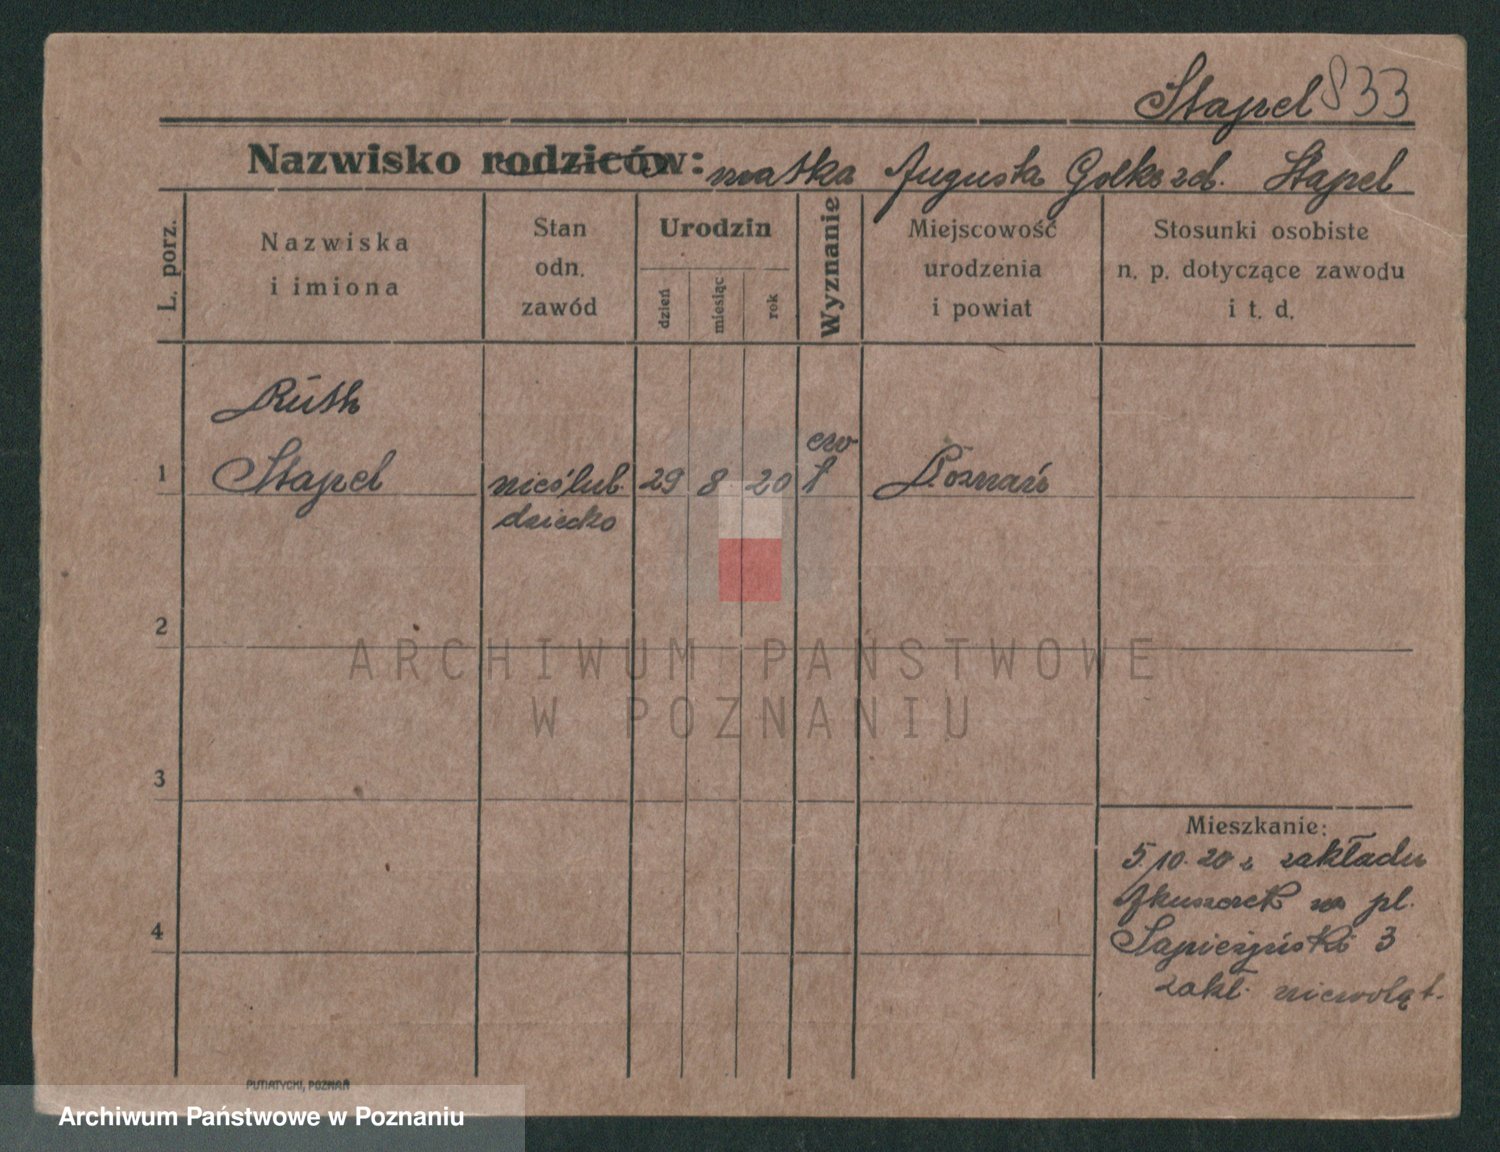 Stapel 833
Nazwisko rodziców: matka Augusta Stapel
L. porz.
Nazwiska
i imiona
Stan
odn.
zawód
Urodzin
dzień
miesiąc
rok
Wyznanie
Miejscowość
urodzenia
i powiat
Stosunki osobiste
n. p. dotyczące zawodu
i t. d.
Ruth
1 Stapel nieślub. 29 8 20 ew Poznań
dziecko
2
ARCHIWUM PAŃSTWOWE
W POZNANIU
3
Mieszkanie:
5.10.20 z zakładu
Akuszerek na pl.
4 Sapieżyński 3
zakł. niewoląt.
PUTIATYCKI, POZNAŃ
Archiwum Państwowe w Poznaniu